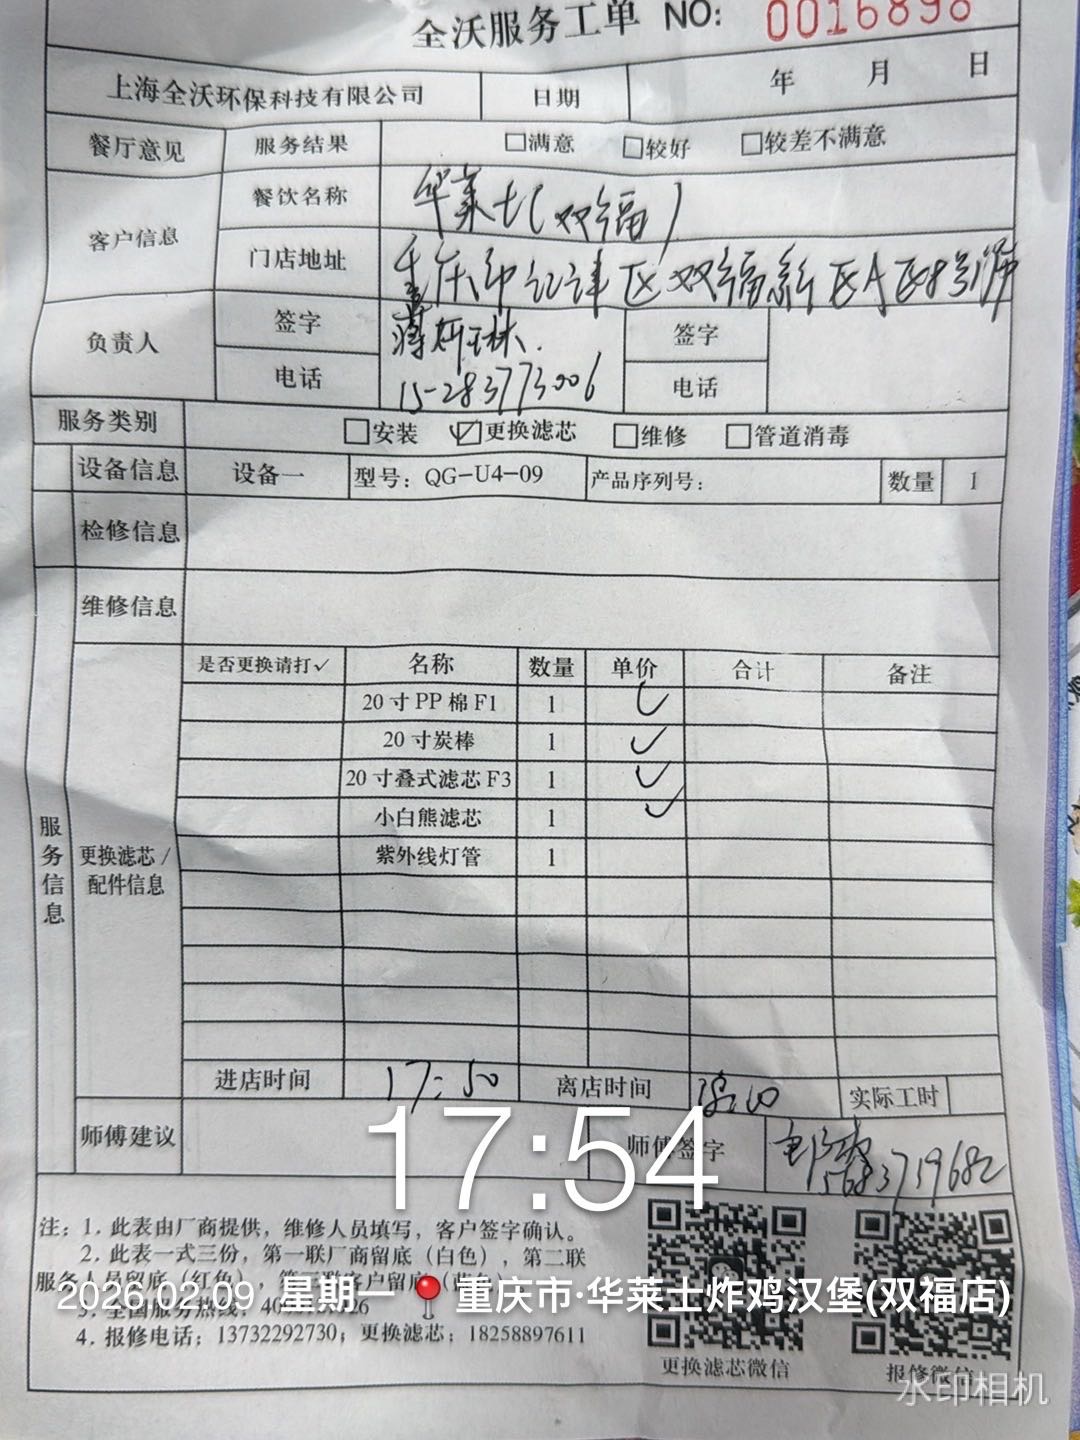 全沃服务工单 NO: 0016898
上海全沃环保科技有限公司 日期 年 月 日
餐厅意见 服务结果 □满意 □较好 □较差不满意
客户信息 餐饮名称 华莱士(双福)
门店地址 重庆市江津区双福新区A区8号
负责人 签字 蒋妍琳. 签字
电话 15-283773006 电话
服务类别 □安装 ☑更换滤芯 □维修 □管道消毒
设备信息 设备一 型号: QG-U4-09 产品序列号: 数量 1
检修信息
维修信息
服务信息
更换滤芯/配件信息
是否更换请打✓ 名称 数量 单价 合计 备注
20寸PP棉F1 1 ✓
20寸炭棒 1 ✓
20寸叠式滤芯F3 1 ✓
小白熊滤芯 1 ✓
紫外线灯管 1
进店时间 17:50 离店时间 实际工时
师傅建议 师傅签字 15683719682
17:54
注: 1. 此表由厂商提供, 维修人员填写, 客户签字确认。
2. 此表一式三份, 第一联厂商留底 (白色), 第二联
服务人员留底 (红色), 客户留底
2026.02.09 星期一 重庆市·华莱士炸鸡汉堡(双福店)
3. 全国服务热线:
4. 报修电话: 13732292730; 更换滤芯: 18258897611
更换滤芯微信 报修微信
水印相机